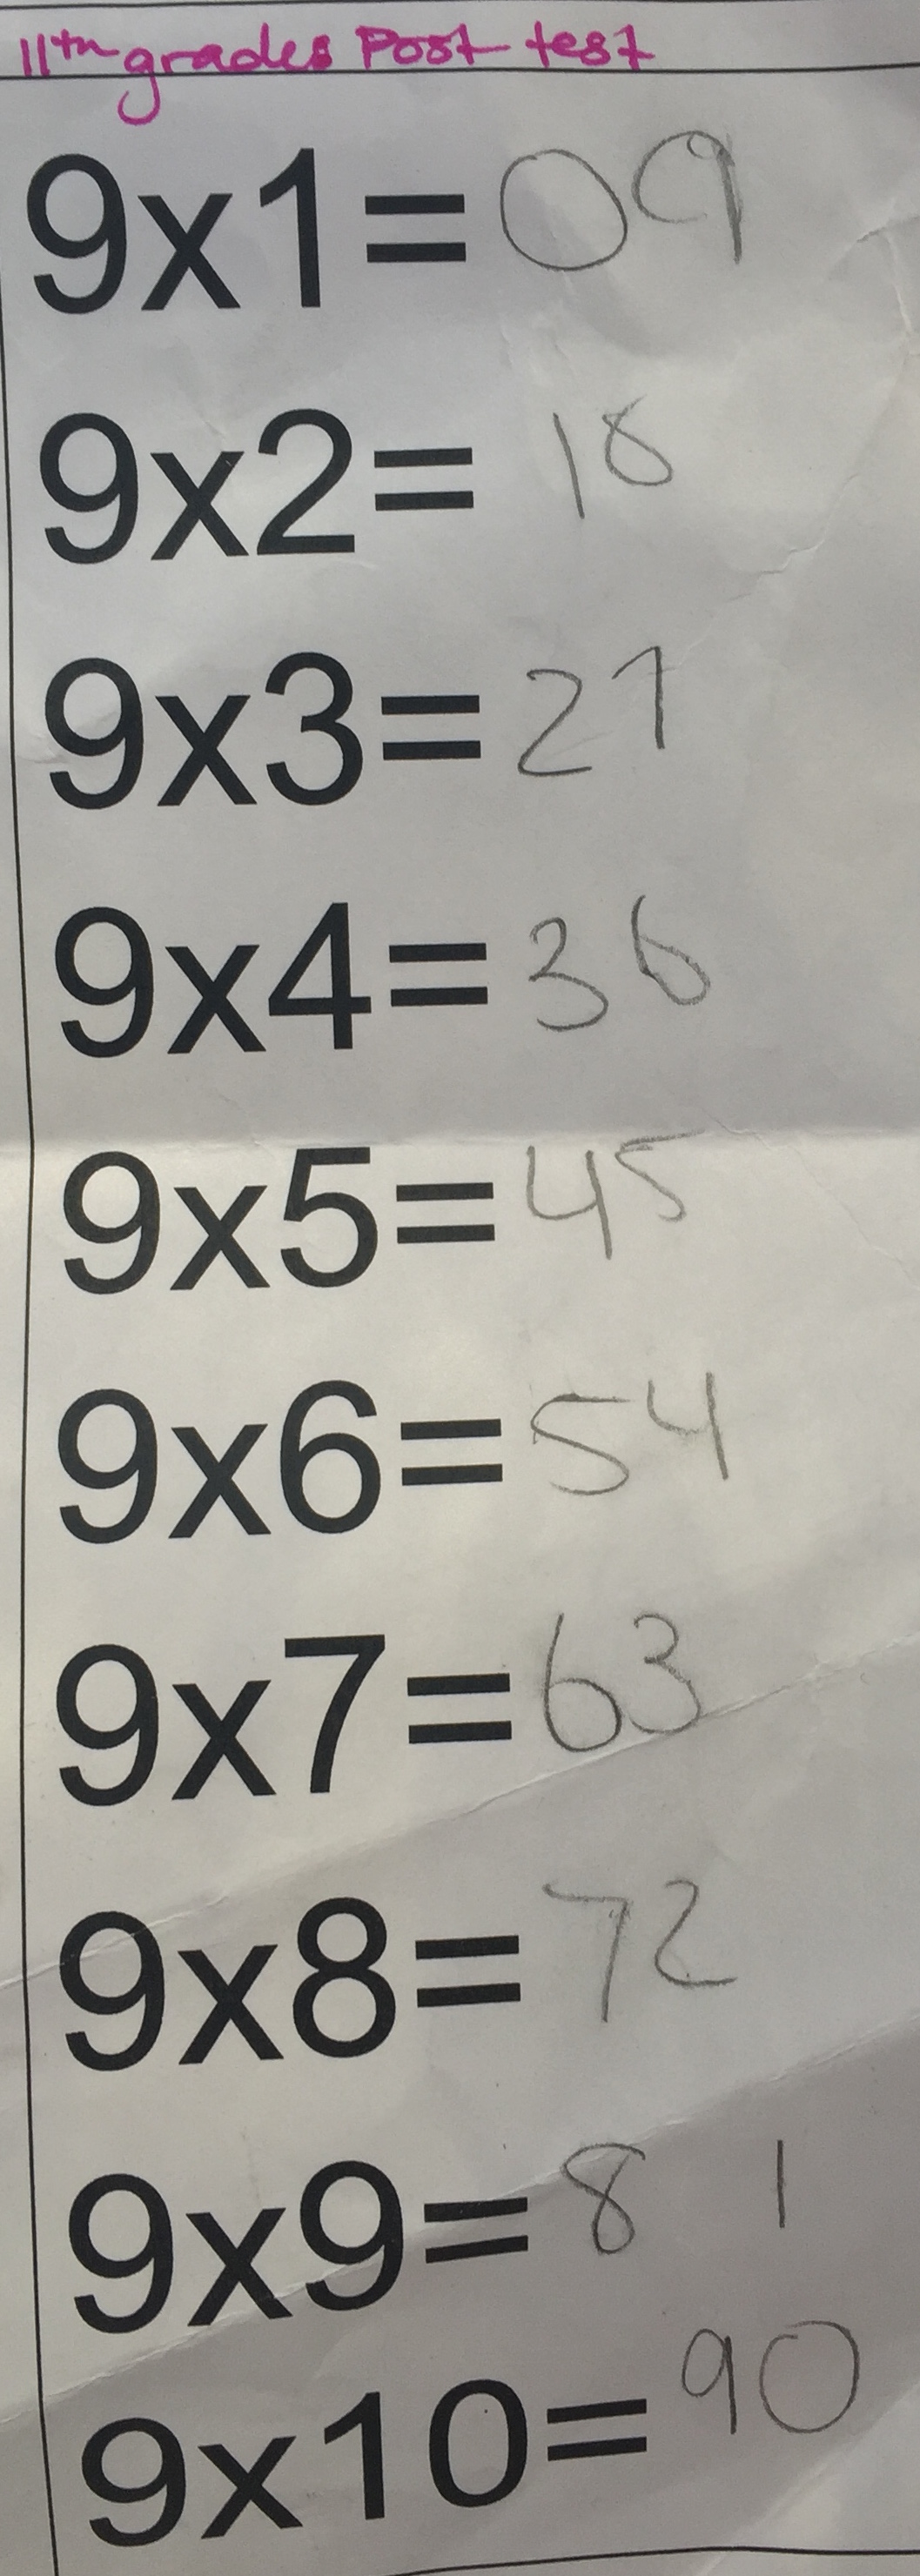 11th grades Post test
9x1=09
9x2=18
9x3=27
9x4=36
9x5=45
9x6=54
9x7=63
9x8=72
9x9=81
9x10=90